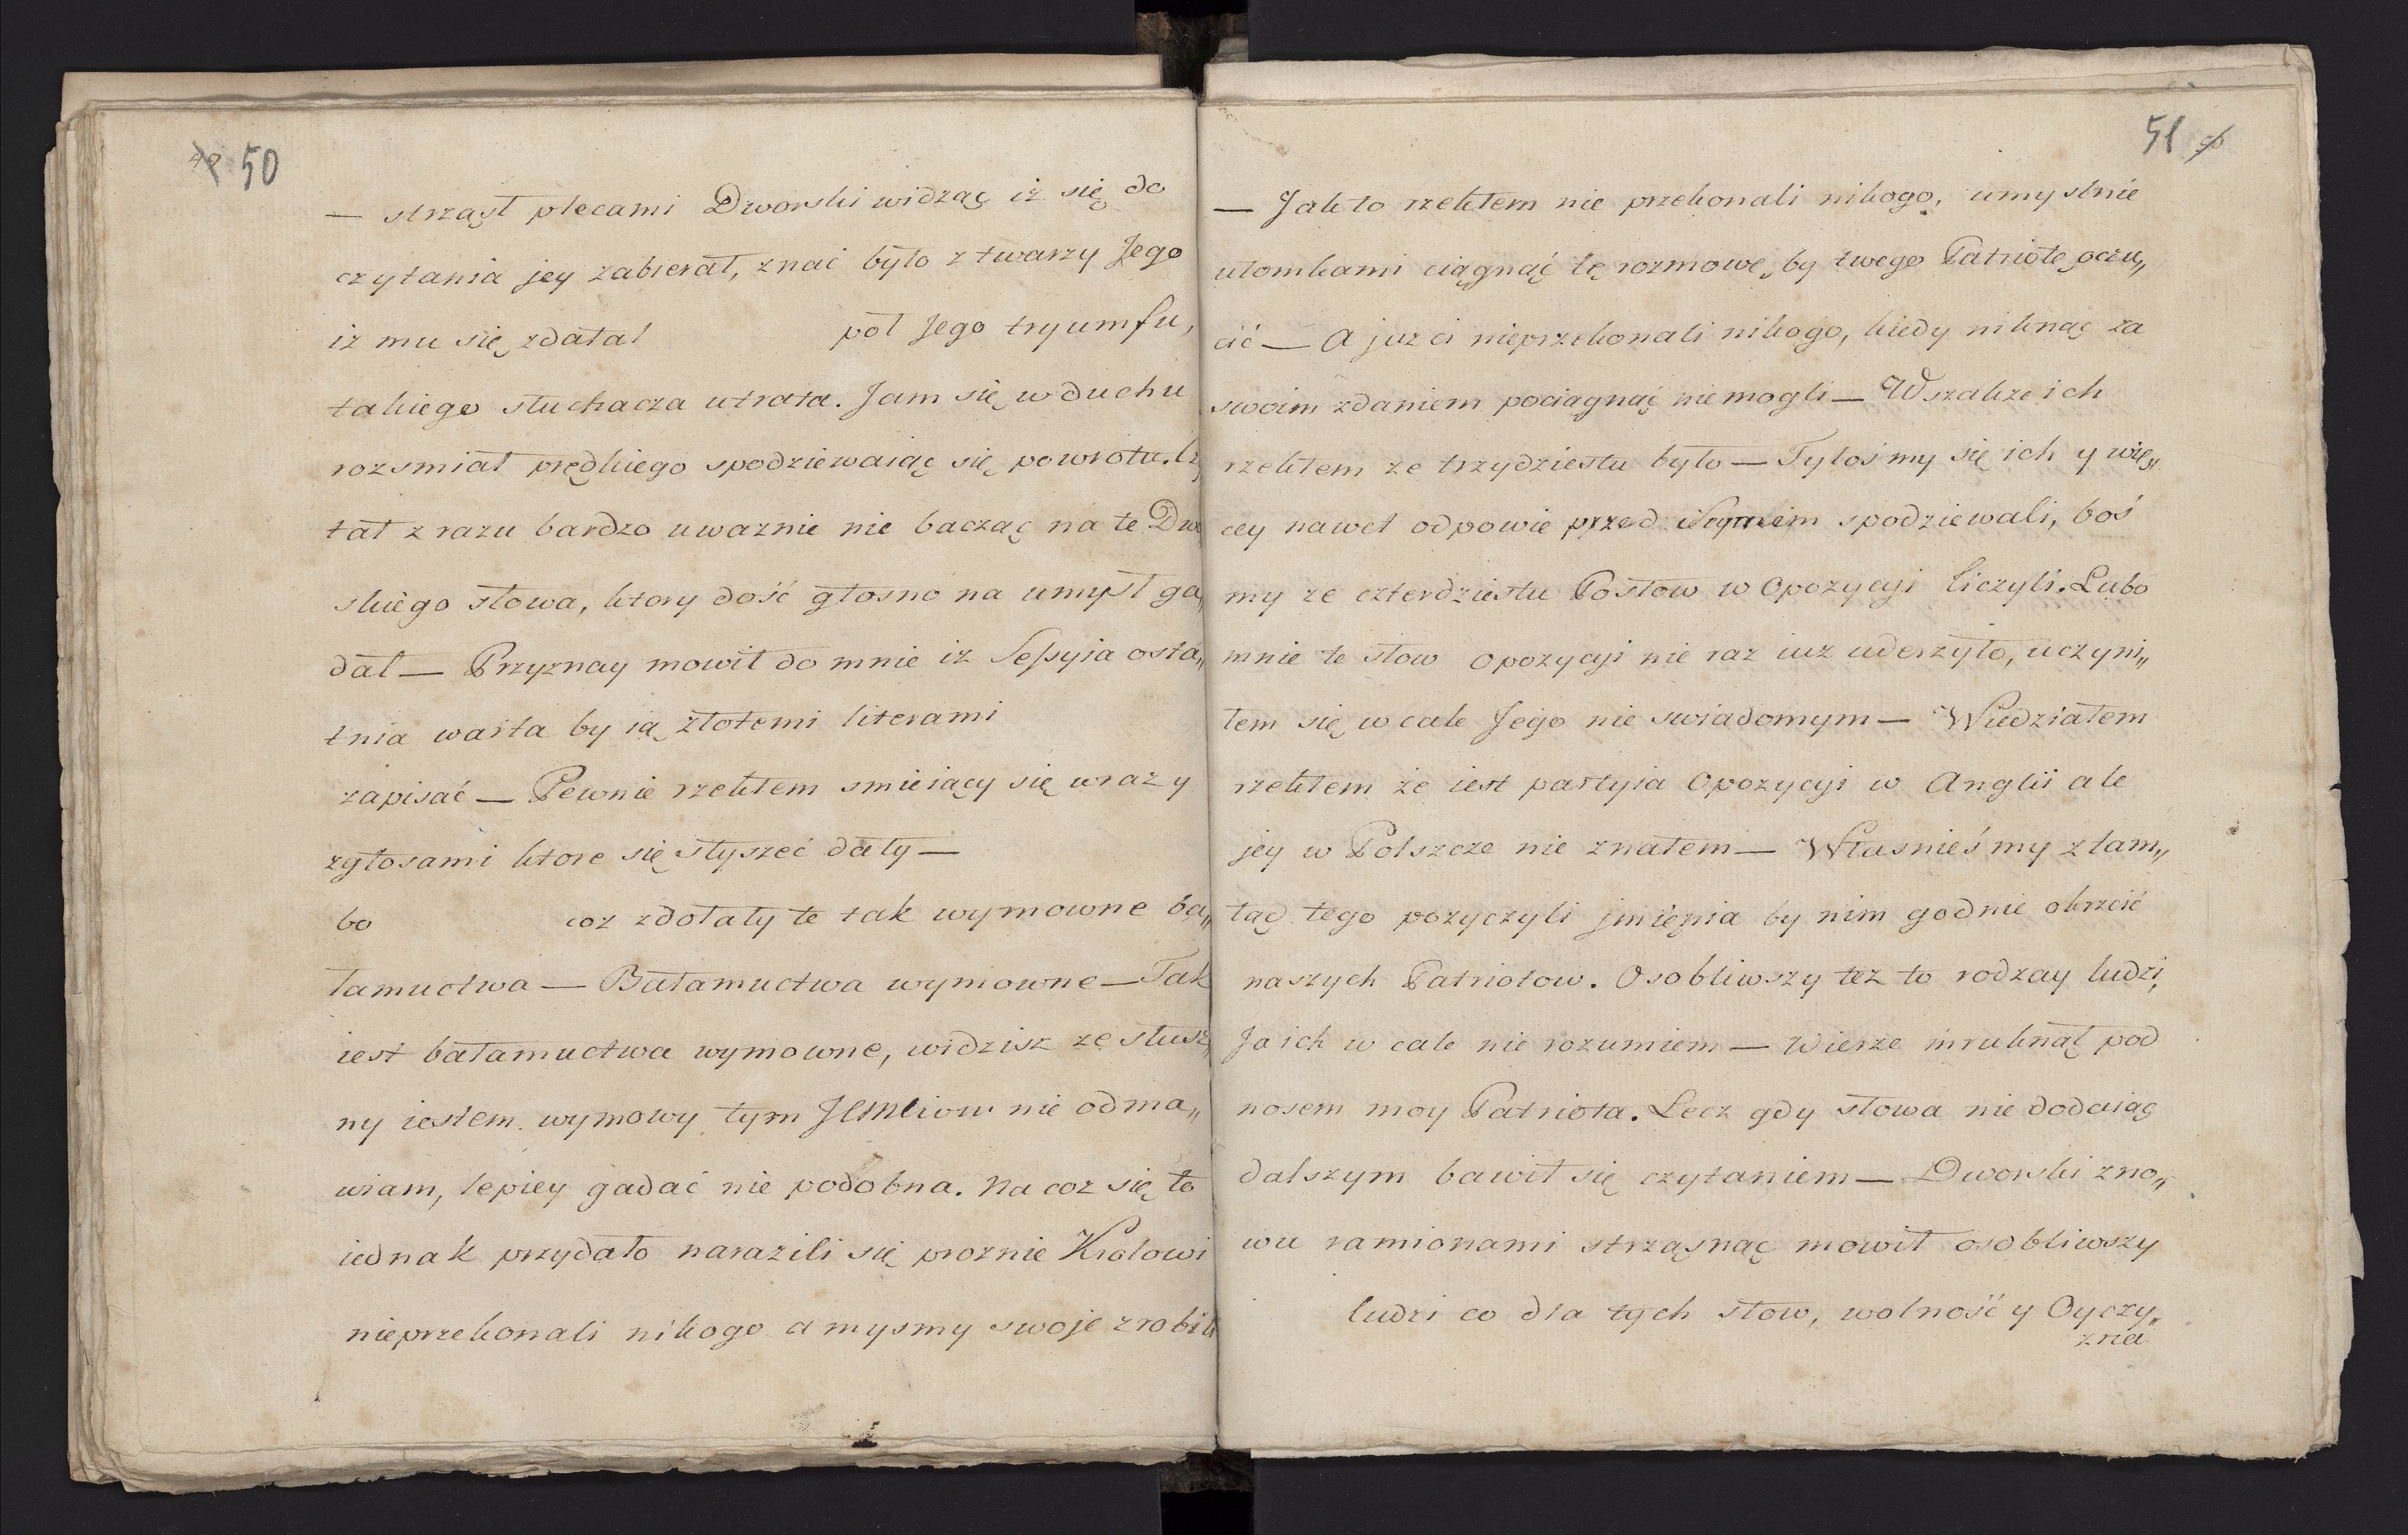 50
— strząsł plecami Dworski widząc iż się do
czytania jey zabierał, znać było z twarzy Jego
iż mu się zdałal pół Jego tryumfu,
takiego słuchacza utrata. Jam się w duchu
rozsmiał prędkiego spodziewaiąc się powrotu. Cz
tał z razu bardzo uwaznie nie bacząc na te Dwo
skiego słowa, ktory dość głosno na umysł ga„
dał — Przyznay mowił do mnie iż Sessyia osta„
tnia warta by ią złotemi literami
zapisać — Pewnie rzekłem smieiący się wraz y
zgłosami ktore się słyszeć dały —
bo coz zdołały te tak wymowne ba„
łamuctwa — Bałamuctwa wymowne — Tak
iest bałamuctwa wymowne, widzisz ze słusz„
ny iestem wymowy tym Jchmciow nie odma„
wiam, lepiey gadać nie podobna. Na coz się to
iednak przydało narazili się proznie Krolowi
nieprzekonali nikogo a mysmy swoje zrobili
51
— Jakto rzekłem nie przekonali nikogo, umyslnie
ułomkami ciągnąc tę rozmowę, by twego Patriotę ocru„
cić — A juz ci nieprzekonali nikogo, kiedy niknąc za
swoim zdaniem pociągnąć nie mogli — Wszakze ich
rzekłem ze trzydziestu było — Tylosmy się ich y wię„
cey nawet odpowie przed Seymem spodziewali, boś
my ze czterdziestu Posłow w Opozycyi liczyli. Lubo
mnie te słow Opozycyi nie raz iuz uderzyło, uczyni„
łem się w cale Jego nie swiadomym — Wiedziałem
rzekłem że iest partyia Opozycyi w Anglii ale
jey w Polszcze nie znałem — Własnieś my z tam„
tąd tego pozyczyli jmienia by nim godnie okrzcić
naszych Patriotow. Osobliwszy tez to rodzay ludzi,
Ja ich w cale nie rozumiem — Wierze mruknął pod
nosem moy Patriota. Lecz gdy słowa nie dodaiąc
dalszym bawił się czytaniem — Dworski zno„
wu ramionami strząsnąc mowił osobliwszy
ludzi co dla tych słow, wolność y Oyczy„
zna